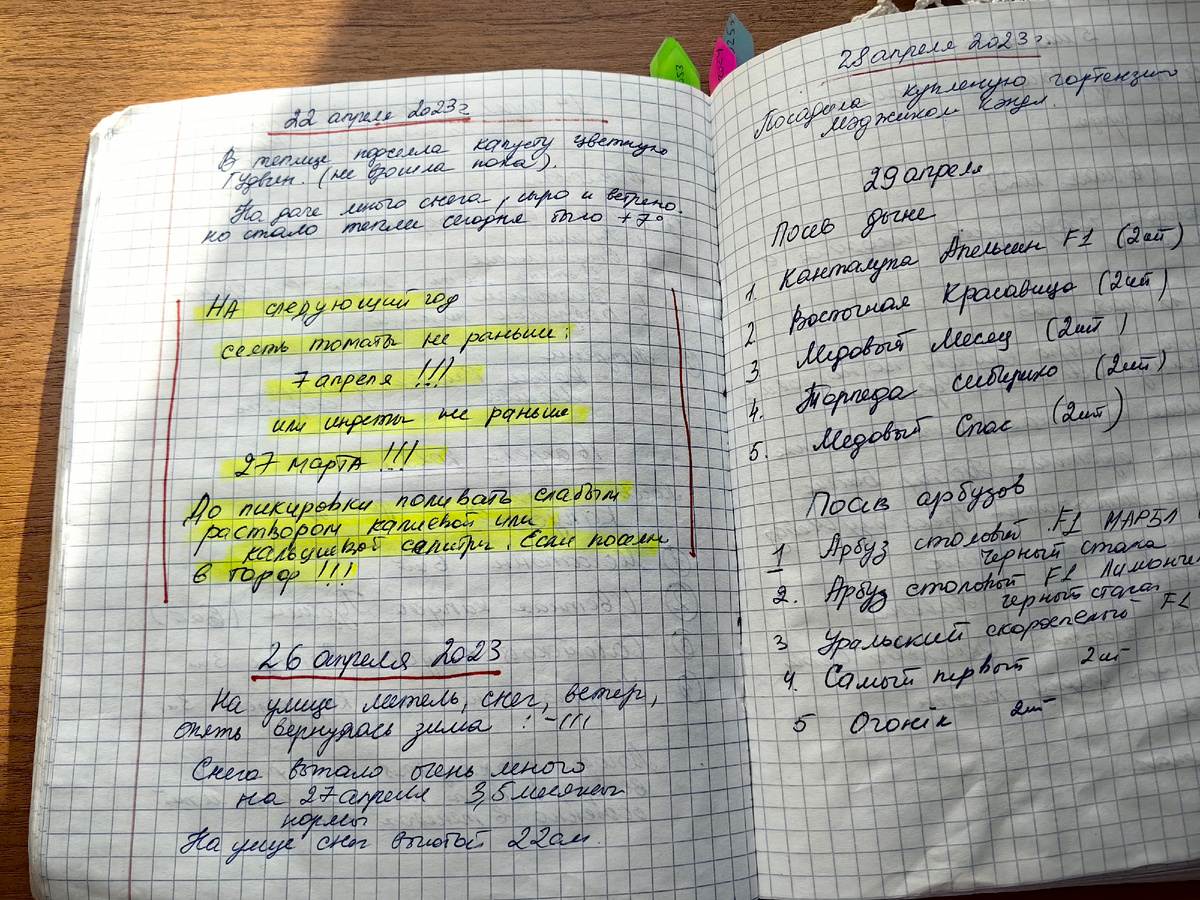 22 апреля 2023г
В теплице подсеяла капусту цветную
Гудвин. (не взошла пока).
На даче много снега, сыро и ветрено.
но стало теплей сегодня было +7°
НА следующий год
сеять томаты не раньше:
7 апреля !!!
или индеты не раньше
27 МАРТА !!!
До пикировки поливать слабым
раствором калиевой или
кальциевой селитры. Если посеяны
в торф !!!
26 апреля 2023
На улице метель, снег, ветер,
опять вернулась зима
Снега выпало очень много
на 27 апреля 3,5 месячных
нормы
На улице снег высотой 22см.
28 апреля 2023г.
Посадила купленую гортензию
Мэджикол Кэндл.
29 апреля
Посев дыне
1. Канталупа Апельсин F1 (2шт)
2 Восточная Красавица (2шт)
3 Медовый Месяц (2шт)
4. Торпеда сибирико (2шт)
5. Медовый Спас (2шт)
Посив арбузов
1 Арбуз столовый F1 МАРБЛ
черный стака
2. Арбуз столовый F1
черный стакан
3 Уральский скороспелый F1
4. Самый первый 2шт
5 Огонік 2шт